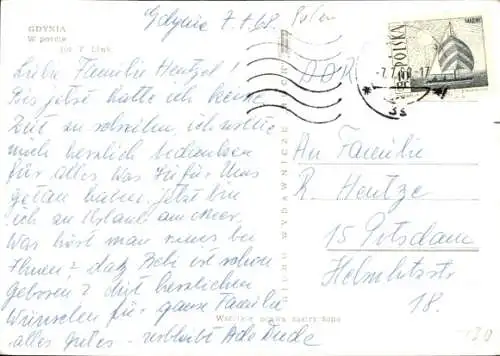 GDYNIA
W porcie
fot. F. Link
Gdynia 7.7.68. Polen
DDR
POLSKA
Liebe Familie Hentzel!
Bis jetzt hatte ich keine
Zeit zu schreiben, ich wollte
mich herzlich bedanken
für alles Was Sie für Uns
getan haben. Jetzt bin
ich an Urlaub am Meer.
Was hört man neues bei
Ihnen? dat schon
geboren? Mit herzlichen
Wünschen für ganze Familie
alles gutes -
An Familie
R. Hentze
15 Potsdam
Helmholtzstr
18.
BIURO WYDAWNICZE RUCH
Wszelkie prawa zastrzeżone